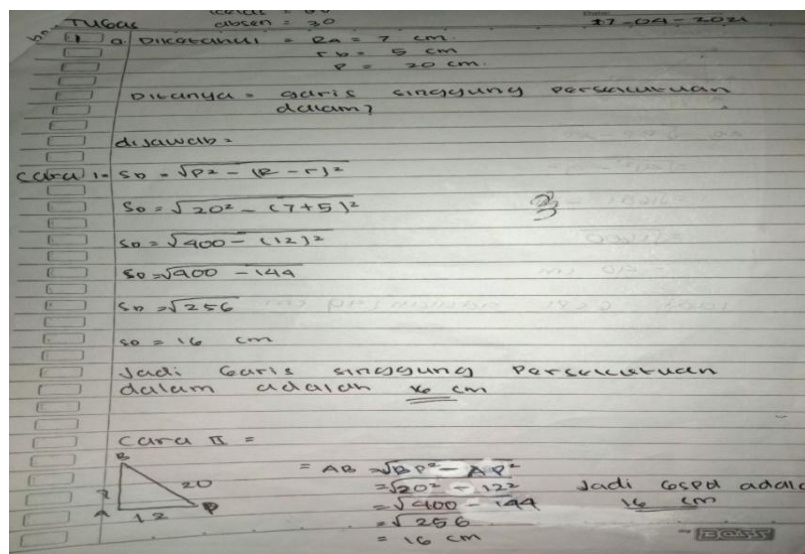 TUGAS
absen = 30
17-04-2021
no
1 a. Diketahui = Ra = 7 cm.
rb = 5 cm
P = 20 cm.
Ditanya = garis singgung persekutuan
dalam?
dijawab =
cara 1= SD = √P² - (R - r)²
SD = √20² - (7+5)²
SD = √400 - (12)²
SD = √400 - 144
SD = √256
SD = 16 cm
Jadi Garis singgung Persekutuan
dalam adalah 16 cm
Cara II =
B
20
?
A 12 P
= AB = √BP² - AP²
= √20² - 12²
= √400 - 144
= √256
= 16 cm
Jadi Gspd adala
16 cm
BOSS